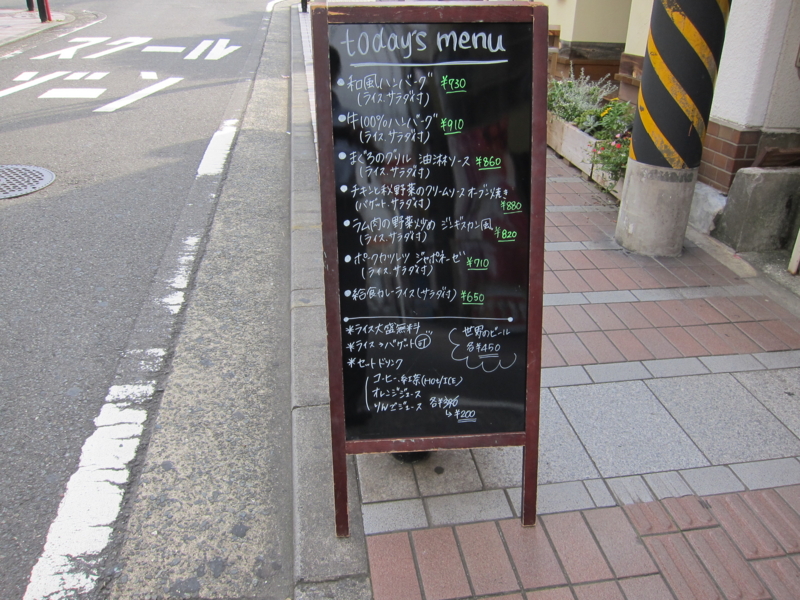 スクール
ゾーン
today's menu
●和風ハンバーグ ¥730
(ライス.サラダ付)
●牛100%ハンバーグ ¥910
(ライス.サラダ付)
●まぐろのグリル 油淋ソース ¥860
(ライス.サラダ付)
●チキンと秋野菜のクリームソースオーブン焼き
(バゲット.サラダ付) ¥880
●ラム肉の野菜炒め ジンギスカン風
(ライス.サラダ付) ¥820
●ポークカツレツ ジャポネーゼ ¥710
(ライス.サラダ付)
●給食カレーライス(サラダ付) ¥650
*ライス大盛無料
*ライス→バゲット可
*セットドリンク
コーヒー.紅茶(HOT/ICE)
オレンジジュース
りんごジュース 各
↳¥200
世界のビール
各¥450